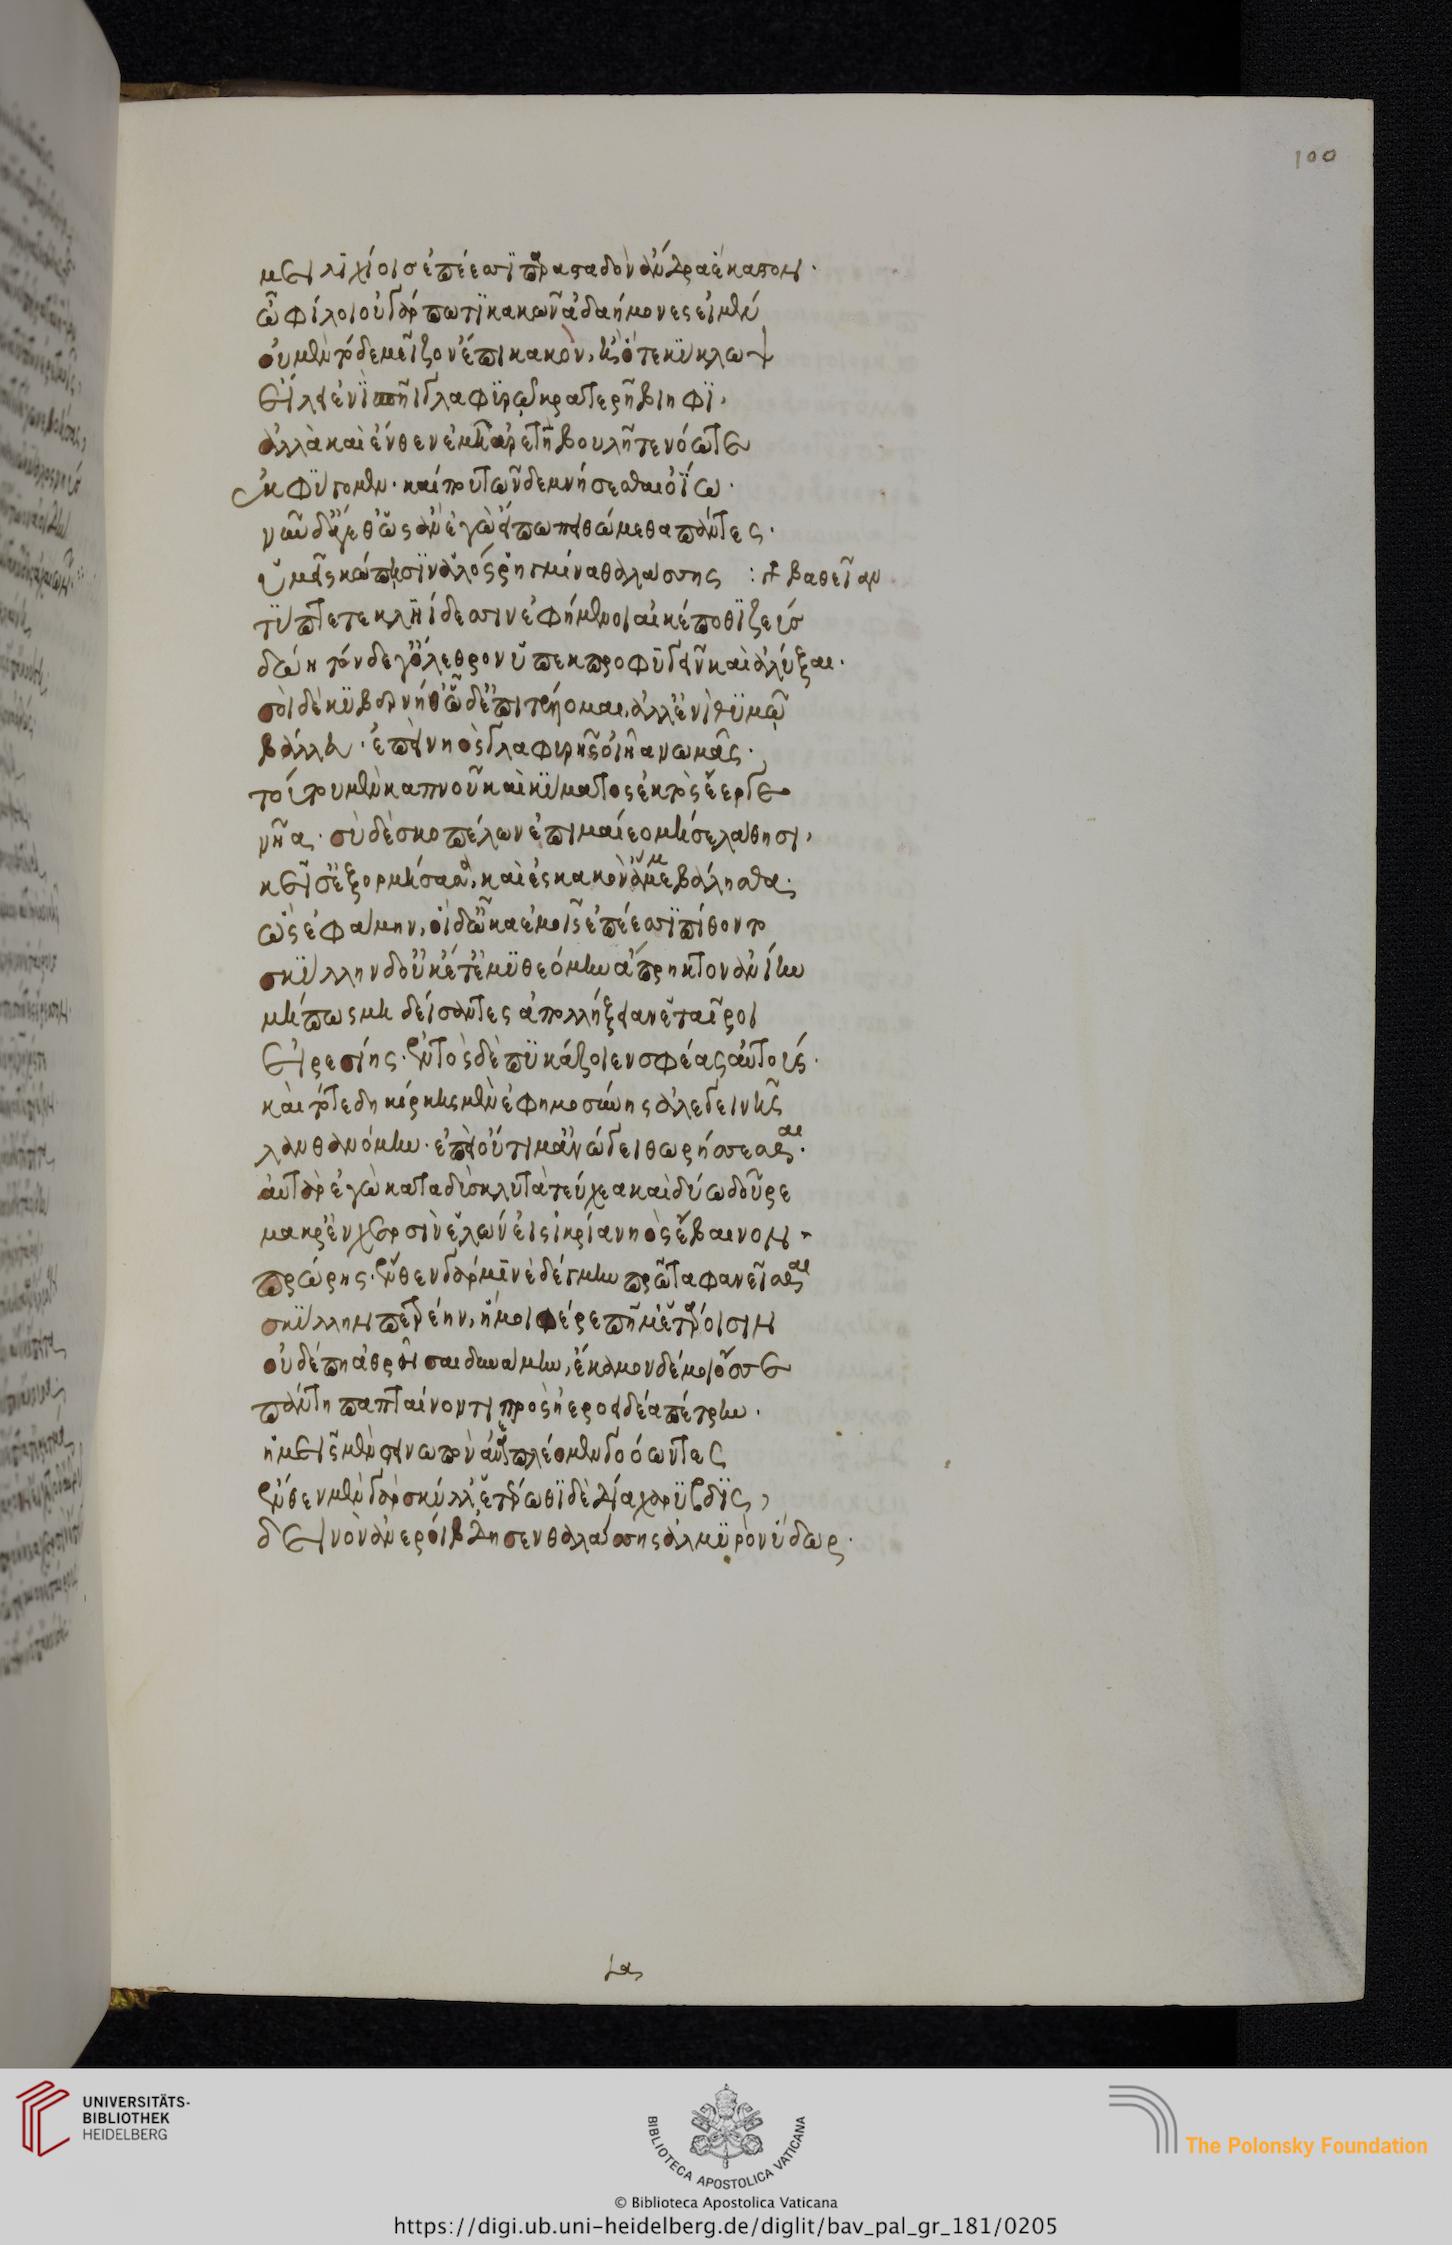 100
μειλιχίοισ ἐπέεσσι παρασταδὸν ἄνδρα ἕκαστον·
ὦ φίλοι οὐ γάρ πώ τι κακῶν ἀδαήμονες εἰμέν
οὐ μὲν τόδε μεῖζον ἔπι κακόν, ἢ ὅτε κύκλωψ
εἴλει ἐνὶ σπῆι γλαφυρῷ κρατερῆ βίηφι,
ἀλλὰ καὶ ἔνθεν ἐμῆ ἀρετῆ βουλῆ τε νόω τε
ἐκφύγομεν· καί που τῶνδε μνήσεσθαι ὀΐω·
νῦν δ' ἄγεθ' ὡς ἂν ἐγὼ εἴπω πειθώμεθα πάντες·
ὑμεῖς κώπησιν ἁλός ῥηγμίνα θαλάσσης :+ βαθεῖαν
τύπτετε κληίδεσσιν ἐφήμενοι αἴ κέ ποθι ζεύσ
δώη τόνδε γ' ὄλεθρον ὑπεκπροφυγεῖν καὶ ἀλύξαι·
σοὶ δὲ κυβερνήθ' ὧδ' ἐπιτέλλομαι, ἀλλ' ἐνὶ θυμῷ
βάλλευ· ἐπεὶ νηὸς γλαφυρῆς οἰήϊα νωμᾶς·
τούτου μὲν καπνοῦ καὶ κύματος ἐκτὸς ἔεργε
νῆα· σὺ δὲ σκοπέλων ἐπιμαίεο μή σε λάθησι,
κεῖσ' ἐξορμήσασα, καὶ ἐς κακὸν ἄμμε βάλησθα·
ὣς ἐφάμην, οἱ δ' ὦκα ἐμοῖς ἐπέεσσι πίθοντο
σκύλλην δ' οὐκέτ' ἐμυθεόμην ἄπρηκτον ἀνίην
μή πως μοι δείσαντες ἀπολλήξειαν ἑταῖροι
εἰρεσίης· ἐντὸς δὲ πυκάζοιεν σφέας αὐτούς·
καὶ τότε δὴ κίρκης μὲν ἐφημοσύνης ἀλεγεινῆς
λανθανόμην· ἐπεὶ οὔτι μ' ἀνώγει θωρήσσεσθαι·
αὐτὰρ ἐγὼ καταδὺς κλυτὰ τεύχεα καὶ δύω δοῦρε
μάκρ' ἐν χερσὶν ἑλών εἰς ἴκρια νηὸς ἔβαινον
πρώρης· ἔνθεν γάρ μιν ἐδέγμην πρῶτα φανεῖσθαι
σκύλλην πετραίην, ἥ μοι φέρε πῆμ' ἑτάροισιν
οὐδέ πη ἀθρῆσαι δυνάμην, ἔκαμον δέ μοι ὄσσε
πάντη παπταίνοντι πρὸς ἠεροειδέα πέτρην·
ἡμεῖς μὲν στεινωπὸν ἀνεπλέομεν γοόωντες
ἔνθεν μὲν γὰρ σκύλλ' ἑτέρωθι δὲ δῖα χάρυβδις,
δεινὸν ἀνερροίβδησεν θαλάσσης ἁλμυρὸν ὕδωρ·
UNIVERSITÄTS-
BIBLIOTHEK
HEIDELBERG
BIBLIOTECA APOSTOLICA VATICANA
The Polonsky Foundation
© Biblioteca Apostolica Vaticana
https://digi.ub.uni-heidelberg.de/diglit/bav_pal_gr_181/0205